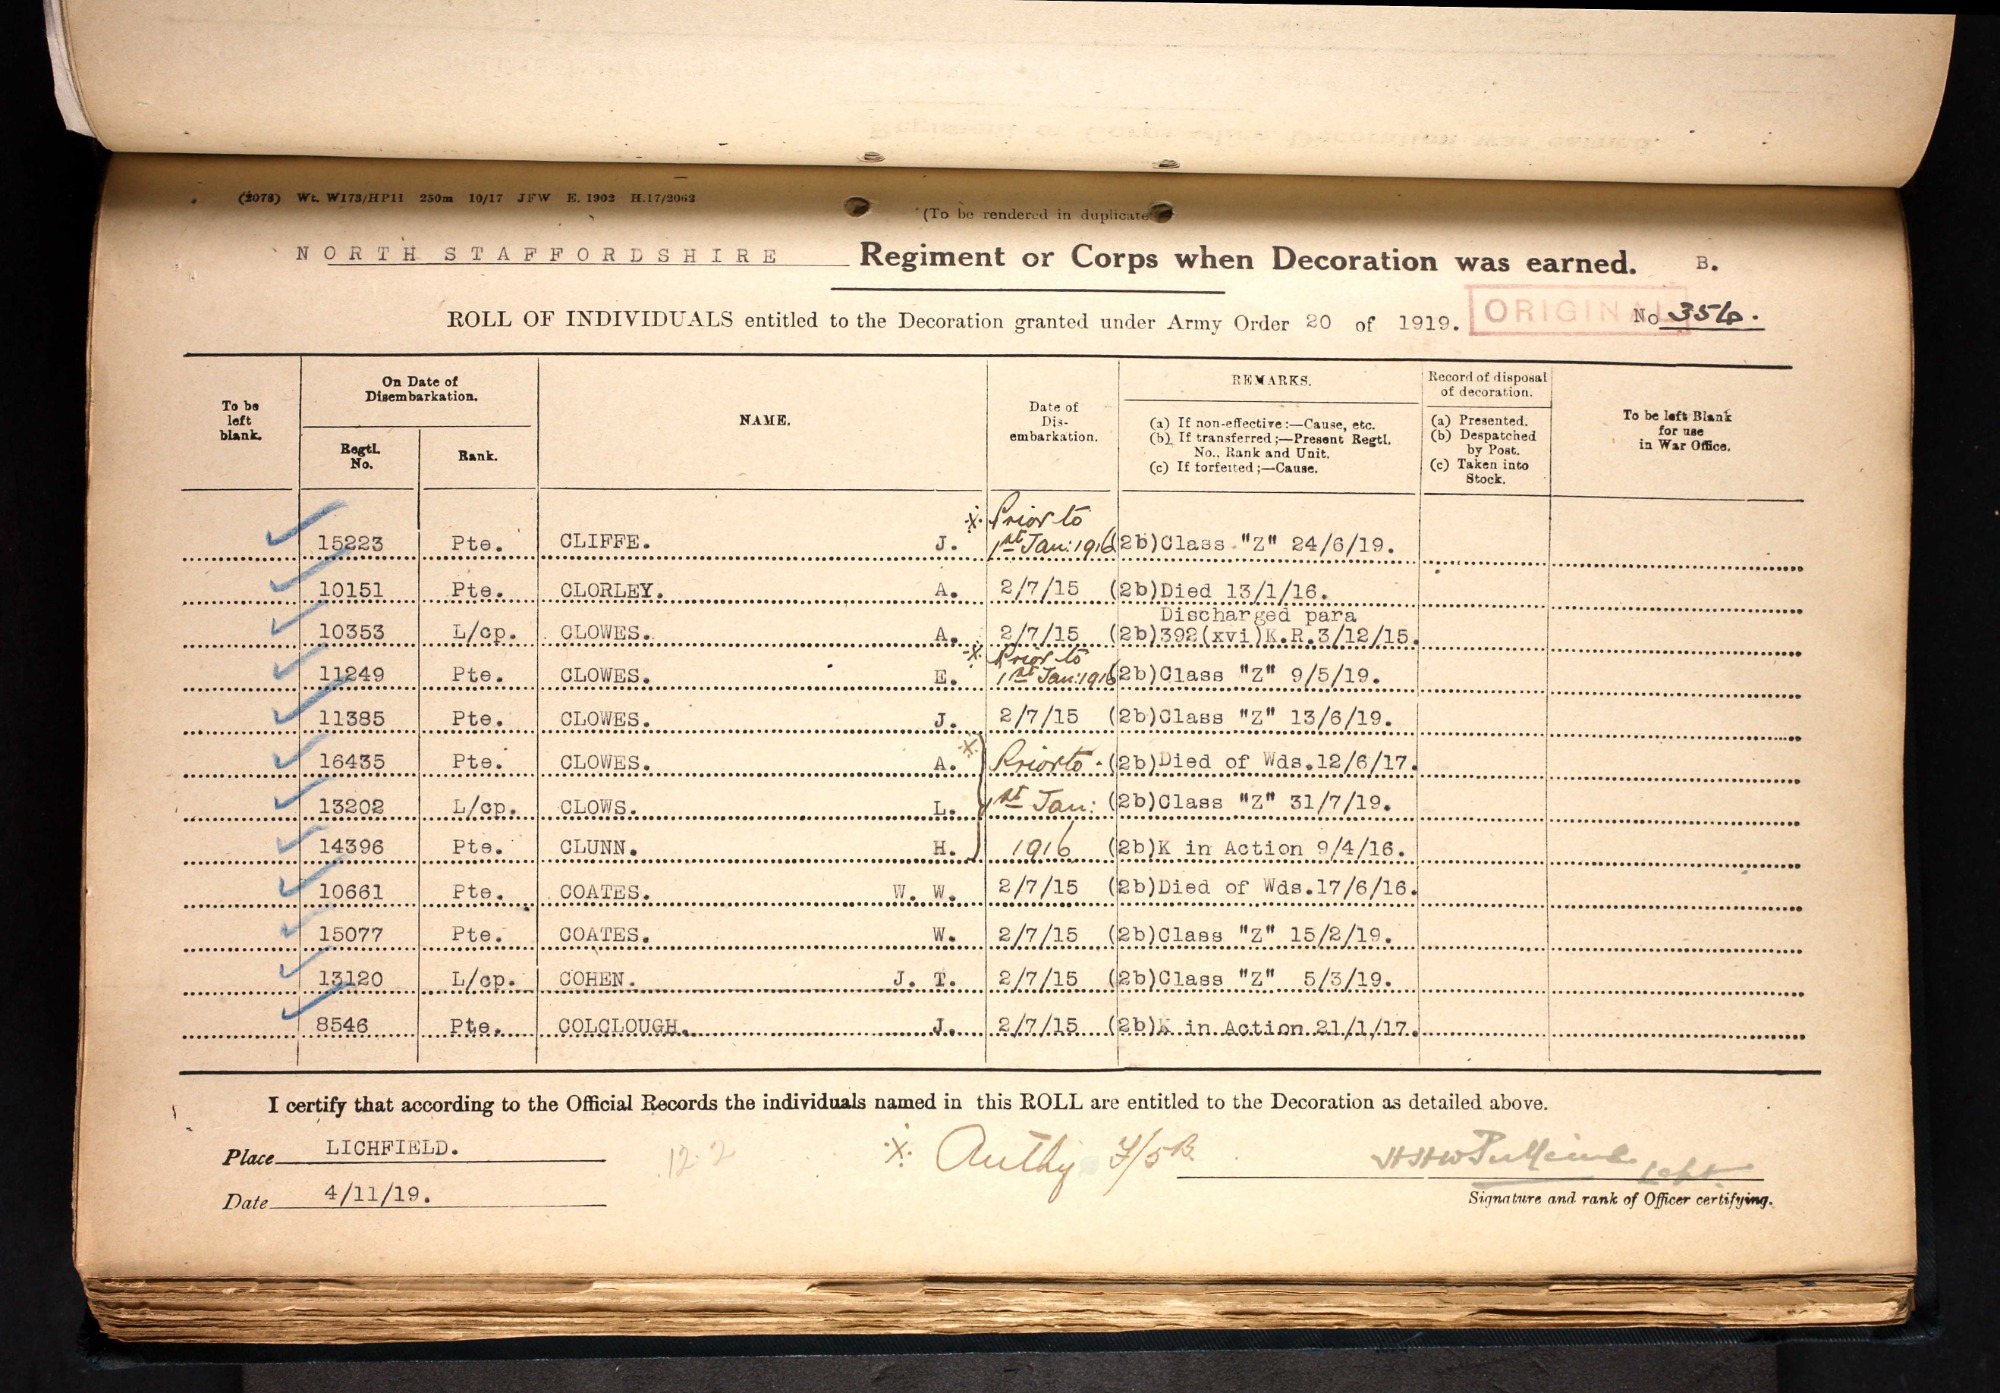 (2078) Wt. W173/HP11 250m 10/17 JFW E. 1902 H.17/2062
(To be rendered in duplicate
NORTH STAFFORDSHIRE Regiment or Corps when Decoration was earned. B.
ROLL OF INDIVIDUALS entitled to the Decoration granted under Army Order 20 of 1919. ORIGINAL No 356.
To be left blank.
On Date of Disembarkation.
Regtl. No.
Rank.
NAME.
Date of Dis-embarkation.
REMARKS.
(a) If non-effective:—Cause, etc.
(b) If transferred;—Present Regtl. No., Rank and Unit.
(c) If forfeited;—Cause.
Record of disposal of decoration.
(a) Presented.
(b) Despatched by Post.
(c) Taken into Stock.
To be left Blank for use in War Office.
15223 Pte. CLIFFE. J. Prior to 1st Jan: 1916 (2b)Class "Z" 24/6/19.
10151 Pte. CLORLEY. A. 2/7/15 (2b)Died 13/1/16.
10353 L/cp. CLOWES. A. 2/7/15 (2b) Discharged para 392(xvi)K.R.3/12/15.
11249 Pte. CLOWES. E. Prior to 1st Jan: 1916 (2b)Class "Z" 9/5/19.
11385 Pte. CLOWES. J. 2/7/15 (2b)Class "Z" 13/6/19.
16435 Pte. CLOWES. A. Prior to (2b)Died of Wds.12/6/17.
13202 L/cp. CLOWS. L. 1st Jan: (2b)Class "Z" 31/7/19.
14396 Pte. CLUNN. H. 1916 (2b)K in Action 9/4/16.
10661 Pte. COATES. W. W. 2/7/15 (2b)Died of Wds.17/6/16.
15077 Pte. COATES. W. 2/7/15 (2b)Class "Z" 15/2/19.
13120 L/cp. COHEN. J. T. 2/7/15 (2b)Class "Z" 5/3/19.
8546 Pte. COLCLOUGH. J. 2/7/15 (2b)K in Action 21/1/17.
I certify that according to the Official Records the individuals named in this ROLL are entitled to the Decoration as detailed above.
Place LICHFIELD.
12.2
Authy
Date 4/11/19.
Signature and rank of Officer certifying.